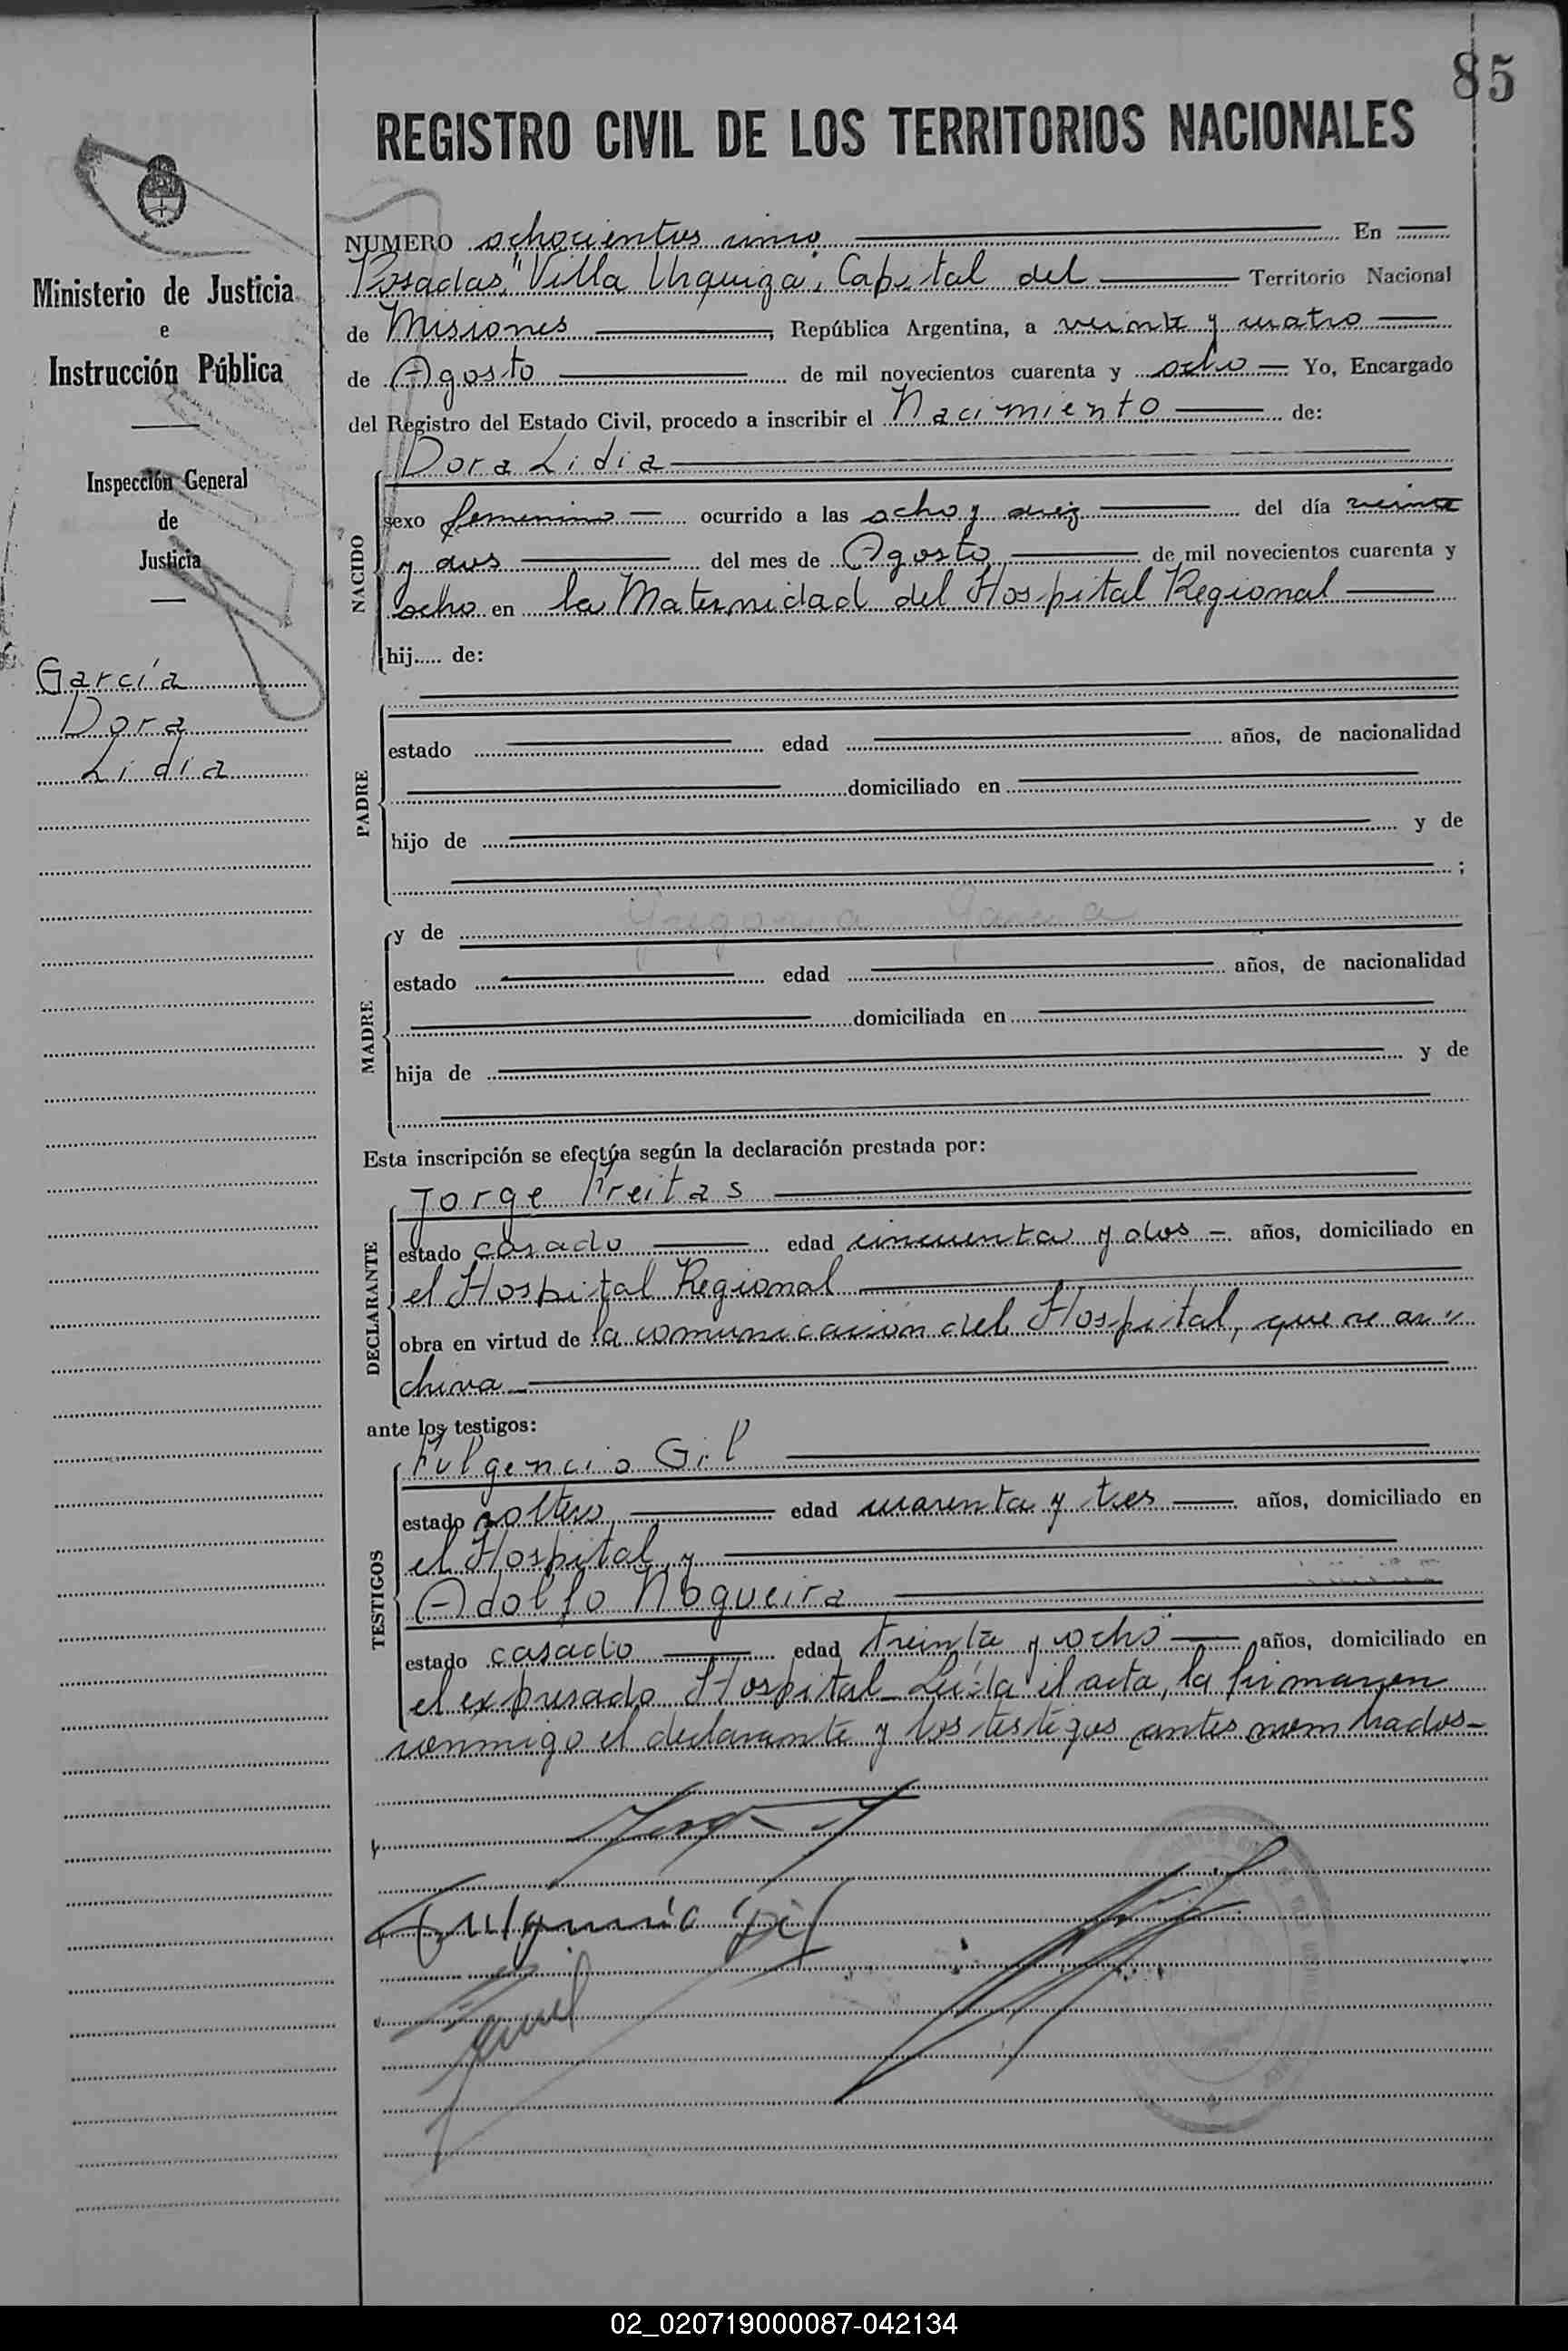 85
REGISTRO CIVIL DE LOS TERRITORIOS NACIONALES
Ministerio de Justicia
e
Instrucción Pública
Inspección General
de
Justicia
García
Dora
Lidia
NUMERO ochocientos uno. En
Posadas, "Villa Urquiza", Capital del Territorio Nacional
de Misiones, República Argentina, a veinte y cuatro
de Agosto de mil novecientos cuarenta y ocho Yo, Encargado
del Registro del Estado Civil, procedo a inscribir el Nacimiento de:
NACIDO
Dora Lidia
sexo femenino ocurrido a las ocho y diez del día veinte
y dos del mes de Agosto de mil novecientos cuarenta y
ocho en la Maternidad del Hospital Regional
hij..... de:
PADRE
estado edad años, de nacionalidad
domiciliado en
hijo de y de
;
MADRE
y de Gregoria Garcia
estado edad años, de nacionalidad
domiciliada en
hija de y de
Esta inscripción se efectúa según la declaración prestada por:
DECLARANTE
Jorge Freitas
estado casado edad cincuenta y dos - años, domiciliado en
el Hospital Regional
obra en virtud de la comunicación del Hospital, que se ar"
chiva
ante los testigos:
TESTIGOS
Fulgencio Gil
estado soltero edad cuarenta y tres años, domiciliado en
el Hospital y
Adolfo Nogueira
estado casado edad treinta y ocho años, domiciliado en
el expresado Hospital Leída el acta, la firmaron
conmigo el declarante y los testigos antes nombrados-
Fulgencio Gil
02_020719000087-042134